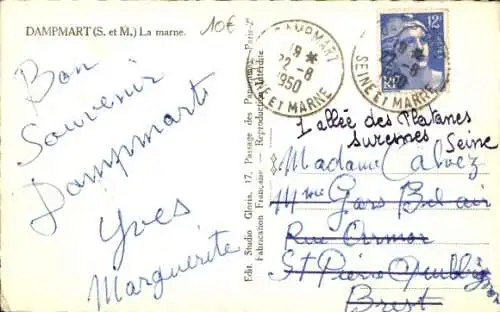 DAMPMART (S. et M.) La marne.
10€
Bon
Souvenir
Dampmart
Yves
Marguerite
Edit. Studio Gloria, 17, Passage des Panoramas, Paris
Fabrication Française — Reproduction Interdite
DAMPMART
19 *
22-8
1950
SEINE ET MARNE
12F
RF
DAMPMART
19 *
22-8
1950
SEINE ET MARNE
1 allée des Platanes
Suresnes Seine
Madame Calvez
Mme Gars Bel air
Rue Armor
St Pierre Quilbignon
Brest